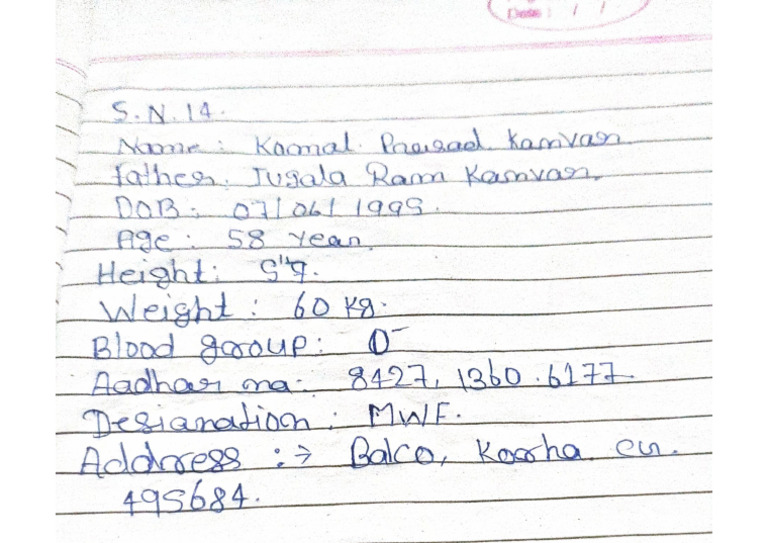 Date: / /
S.N.14.
Name: Komal. Prasad. Kanwar.
Father: Jugala Ram Kanwar.
DOB: 07/06/1995.
Age: 58 Year.
Height: 5"7.
Weight: 60 Kg.
Blood group: O-
Aadhar no: 8427, 1360.6177.
Designation: MWF.
Address :→ Balco, Koorba. CG.
495684.